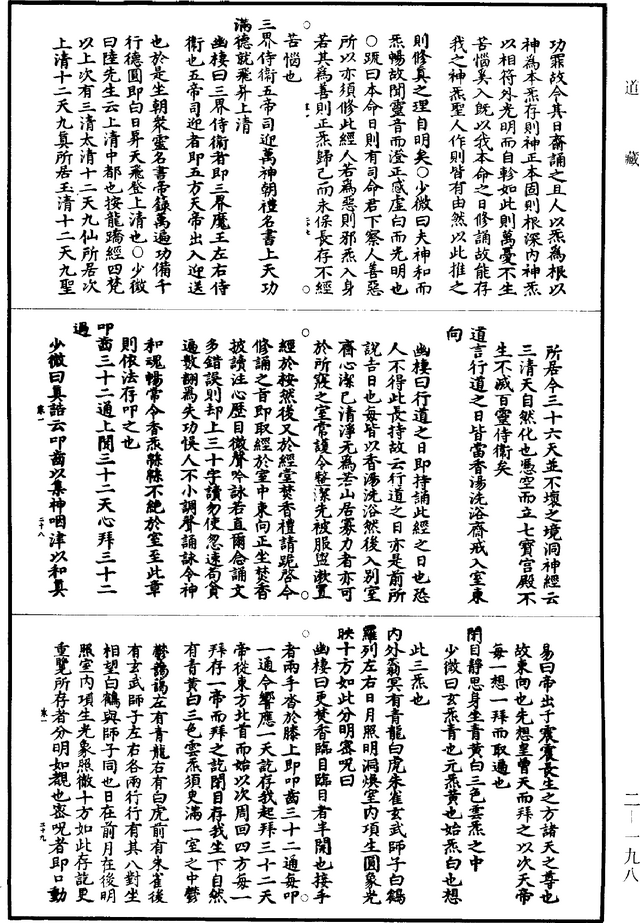 道藏
功罪故令其日齋誦之且人以炁爲根以
神爲本炁存則神正本固則根深內神炁
以相符外光明而自軫如此則萬憂不生
苦惱奚入旣以我本命之日修誦故能存
我之神炁聖人作則皆有由然以此推之
則修真之理自明矣○少微曰夫神和而
炁暢故聞靈音而澄正感虛白而光明也
○䟽曰本命日則有司命君下察人善惡
所以亦須修此經人若爲惡則邪炁入身
若其爲善則正炁歸己而永保長存不經
苦惱也
三界侍衛五帝司迎萬神朝禮名書上天功
滿德就飛昇上清
幽棲曰三界侍衛者即三界魔王左右侍
衛也五帝司迎者即五方天帝出入迎送
也於是坐朝衆靈名書帝籙萬遍功備千
行德圓即白日昇天飛登上清也○少微
曰陸先生云上清中都也按龍蹻經四梵
以上次有三清太清十二天九仙所居次
上清十二天九真所居玉清十二天九聖
所居今三十六天並不壞之境洞神經云
三清天自然化也憑空而立七寶宮殿不
生不滅百靈侍衛矣
道言行道之日皆當香湯洗浴齋戒入室東
向
幽棲曰行道之日即持誦此經之日也恐
人不得此長持故云行道之日亦是前所
說吉日也每皆以香湯洗浴然後入別室
齊心潔己清淨無爲若山居寡力者亦可
於所寢之室常護令整潔先被服盥漱置
經於桉然後又於經堂焚香禮請跪啓今
修誦之旨即取經於室中東向正坐焚香
披讀注心歷目微聲吟詠若直爾合誦文
多錯誤則却上三十字讀勿使忽速苟貪
遍數翻爲失功悞人不小調聲誦詠令神
和魂暢常令香炁緜緜不絶於室至此章
則依法存叩之也
叩齒三十二通上聞三十二天心拜三十二
過
少微曰真誥云叩齒以集神咽津以和真
易曰帝出于震震長生之方諸天之尊也
故東向也先想皇曾天而拜之以次天帝
每一想一拜而取遍也
閉目靜思身坐青黄白三色雲炁之中
少微曰玄炁青也元炁黄也始炁白也想
此三炁也
內外蓊冥有青龍白虎朱雀玄武師子白鶴
羅列左右日月照明洞煥室內項生圓象光
映十方如此分明密呪曰
幽棲曰更焚香臨目臨目者半閉也接手
者兩手沓於膝上即叩齒三十二通每叩
一通令響應一天訖存我起拜三十二天
帝從東方北首而始以次周回四方每一
拜存一帝而拜之訖閉目存我坐下自然
有青黄白三色雲炁須臾滿一室之中鬱
鬱藹藹左有青龍右有白虎前有朱雀後
有玄武師子左右各兩行行有其八對坐
相望白鶴與師子同也日在前月在後明
照室內項生光象照徹十方如此存訖更
重覽所存者分明如覩也密呪者即口動
二—一九八